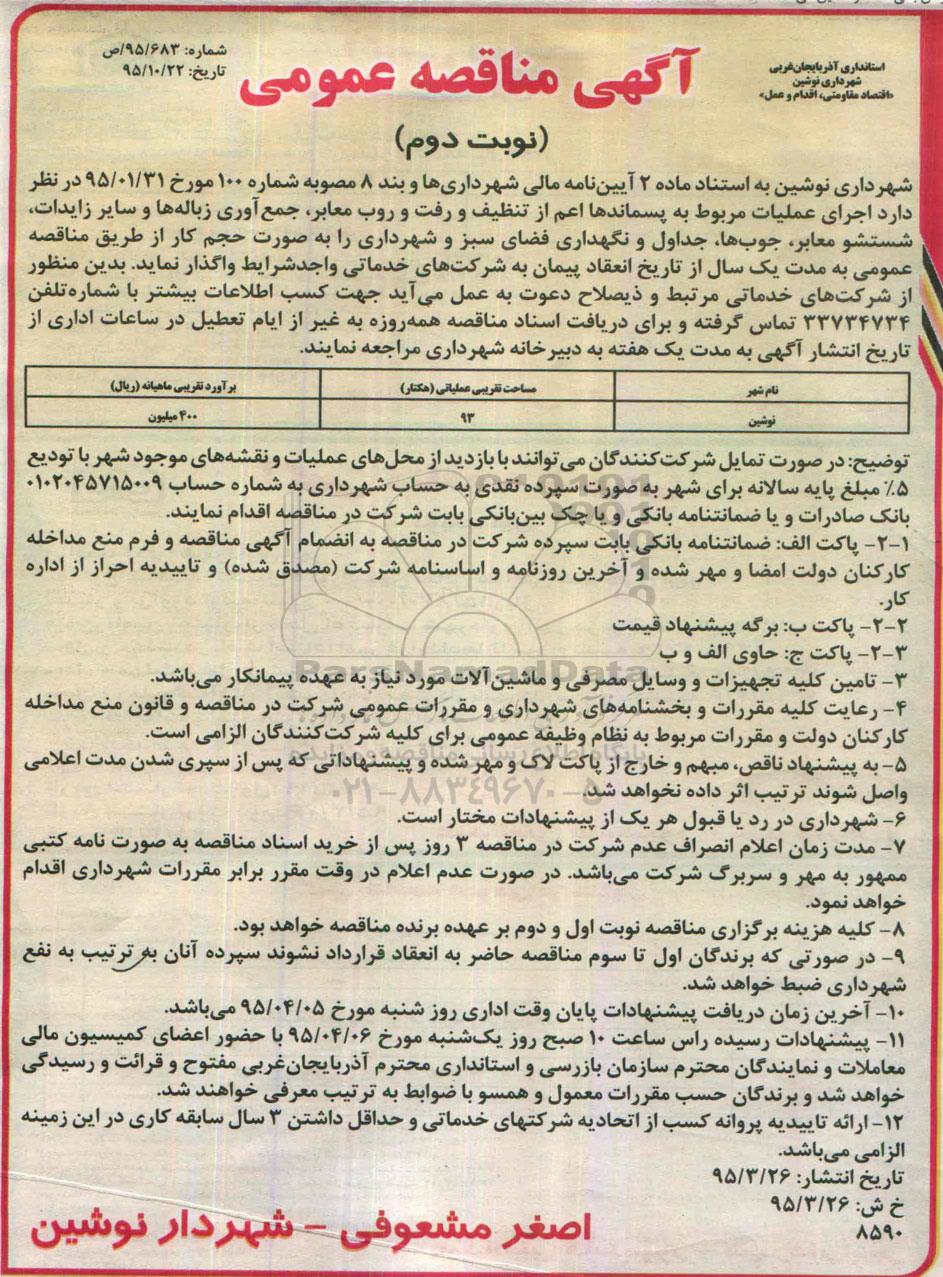 استانداری آذربایجان‌غربی
شهرداری نوشین
«اقتصاد مقاومتی، اقدام و عمل»
آگهی مناقصه عمومی
شماره: ۹۵/۶۸۳/ص
تاریخ: ۹۵/۱۰/۲۲
(نوبت دوم)
شهرداری نوشین به استناد ماده ۲ آیین‌نامه مالی شهرداری‌ها و بند ۸ مصوبه شماره ۱۰۰ مورخ ۹۵/۰۱/۳۱ در نظر
دارد اجرای عملیات مربوط به پسماندها اعم از تنظیف و رفت و روب معابر، جمع‌آوری زباله‌ها و سایر زایدات،
شستشو معابر، جوب‌ها، جداول و نگهداری فضای سبز و شهرداری را به صورت حجم کار از طریق مناقصه
عمومی به مدت یک سال از تاریخ انعقاد پیمان به شرکت‌های خدماتی واجدشرایط واگذار نماید. بدین منظور
از شرکت‌های خدماتی مرتبط و ذیصلاح دعوت به عمل می‌آید جهت کسب اطلاعات بیشتر با شماره‌تلفن
۳۳۷۳۴۷۳۴ تماس گرفته و برای دریافت اسناد مناقصه همه‌روزه به غیر از ایام تعطیل در ساعات اداری از
تاریخ انتشار آگهی به مدت یک هفته به دبیرخانه شهرداری مراجعه نمایند.
نام شهر مساحت تقریبی عملیاتی (هکتار) برآورد تقریبی ماهیانه (ریال)
نوشین ۹۳ ۴۰۰ میلیون
توضیح: در صورت تمایل شرکت‌کنندگان می‌توانند با بازدید از محل‌های عملیات و نقشه‌های موجود شهر با تودیع
۵٪ مبلغ پایه سالانه برای شهر به صورت سپرده نقدی به حساب شهرداری به شماره حساب ۰۱۰۲۰۴۵۷۱۵۰۰۹
بانک صادرات و یا ضمانتنامه بانکی و یا چک بین‌بانکی بابت شرکت در مناقصه اقدام نمایند.
۲-۱- پاکت الف: ضمانتنامه بانکی بابت سپرده شرکت در مناقصه به انضمام آگهی مناقصه و فرم منع مداخله
کارکنان دولت امضا و مهر شده و آخرین روزنامه و اساسنامه شرکت (مصدق شده) و تاییدیه احراز از اداره
کار.
۲-۲- پاکت ب: برگه پیشنهاد قیمت
۲-۳- پاکت ج: حاوی الف و ب
۳- تامین کلیه تجهیزات و وسایل مصرفی و ماشین‌آلات مورد نیاز به عهده پیمانکار می‌باشد.
۴- رعایت کلیه مقررات و بخشنامه‌های شهرداری و مقررات عمومی شرکت در مناقصه و قانون منع مداخله
کارکنان دولت و مقررات مربوط به نظام وظیفه عمومی برای کلیه شرکت‌کنندگان الزامی است.
۵- به پیشنهاد ناقص، مبهم و خارج از پاکت لاک و مهر شده و پیشنهاداتی که پس از سپری شدن مدت اعلامی
واصل شوند ترتیب اثر داده نخواهد شد.
۶- شهرداری در رد یا قبول هر یک از پیشنهادات مختار است.
۷- مدت زمان اعلام انصراف عدم شرکت در مناقصه ۳ روز پس از خرید اسناد مناقصه به صورت نامه کتبی
ممهور به مهر و سربرگ شرکت می‌باشد. در صورت عدم اعلام در وقت مقرر برابر مقررات شهرداری اقدام
خواهد نمود.
۸- کلیه هزینه برگزاری مناقصه نوبت اول و دوم بر عهده برنده مناقصه خواهد بود.
۹- در صورتی که برندگان اول تا سوم مناقصه حاضر به انعقاد قرارداد نشوند سپرده آنان به ترتیب به نفع
شهرداری ضبط خواهد شد.
۱۰- آخرین زمان دریافت پیشنهادات پایان وقت اداری روز شنبه مورخ ۹۵/۰۴/۰۵ می‌باشد.
۱۱- پیشنهادات رسیده راس ساعت ۱۰ صبح روز یک‌شنبه مورخ ۹۵/۰۴/۰۶ با حضور اعضای کمیسیون مالی
معاملات و نمایندگان محترم سازمان بازرسی و استانداری محترم آذربایجان‌غربی مفتوح و قرائت و رسیدگی
خواهد شد و برندگان حسب مقررات معمول و همسو با ضوابط به ترتیب معرفی خواهند شد.
۱۲- ارائه تاییدیه پروانه کسب از اتحادیه شرکتهای خدماتی و حداقل داشتن ۳ سال سابقه کاری در این زمینه
الزامی می‌باشد.
تاریخ انتشار: ۹۵/۳/۲۶
خ ش: ۹۵/۳/۲۶
۸۵۹۰
اصغر مشعوفی - شهردار نوشین
ParsNamadData
۰۲۱-۸۸۳۴۹۶۷۰-۵